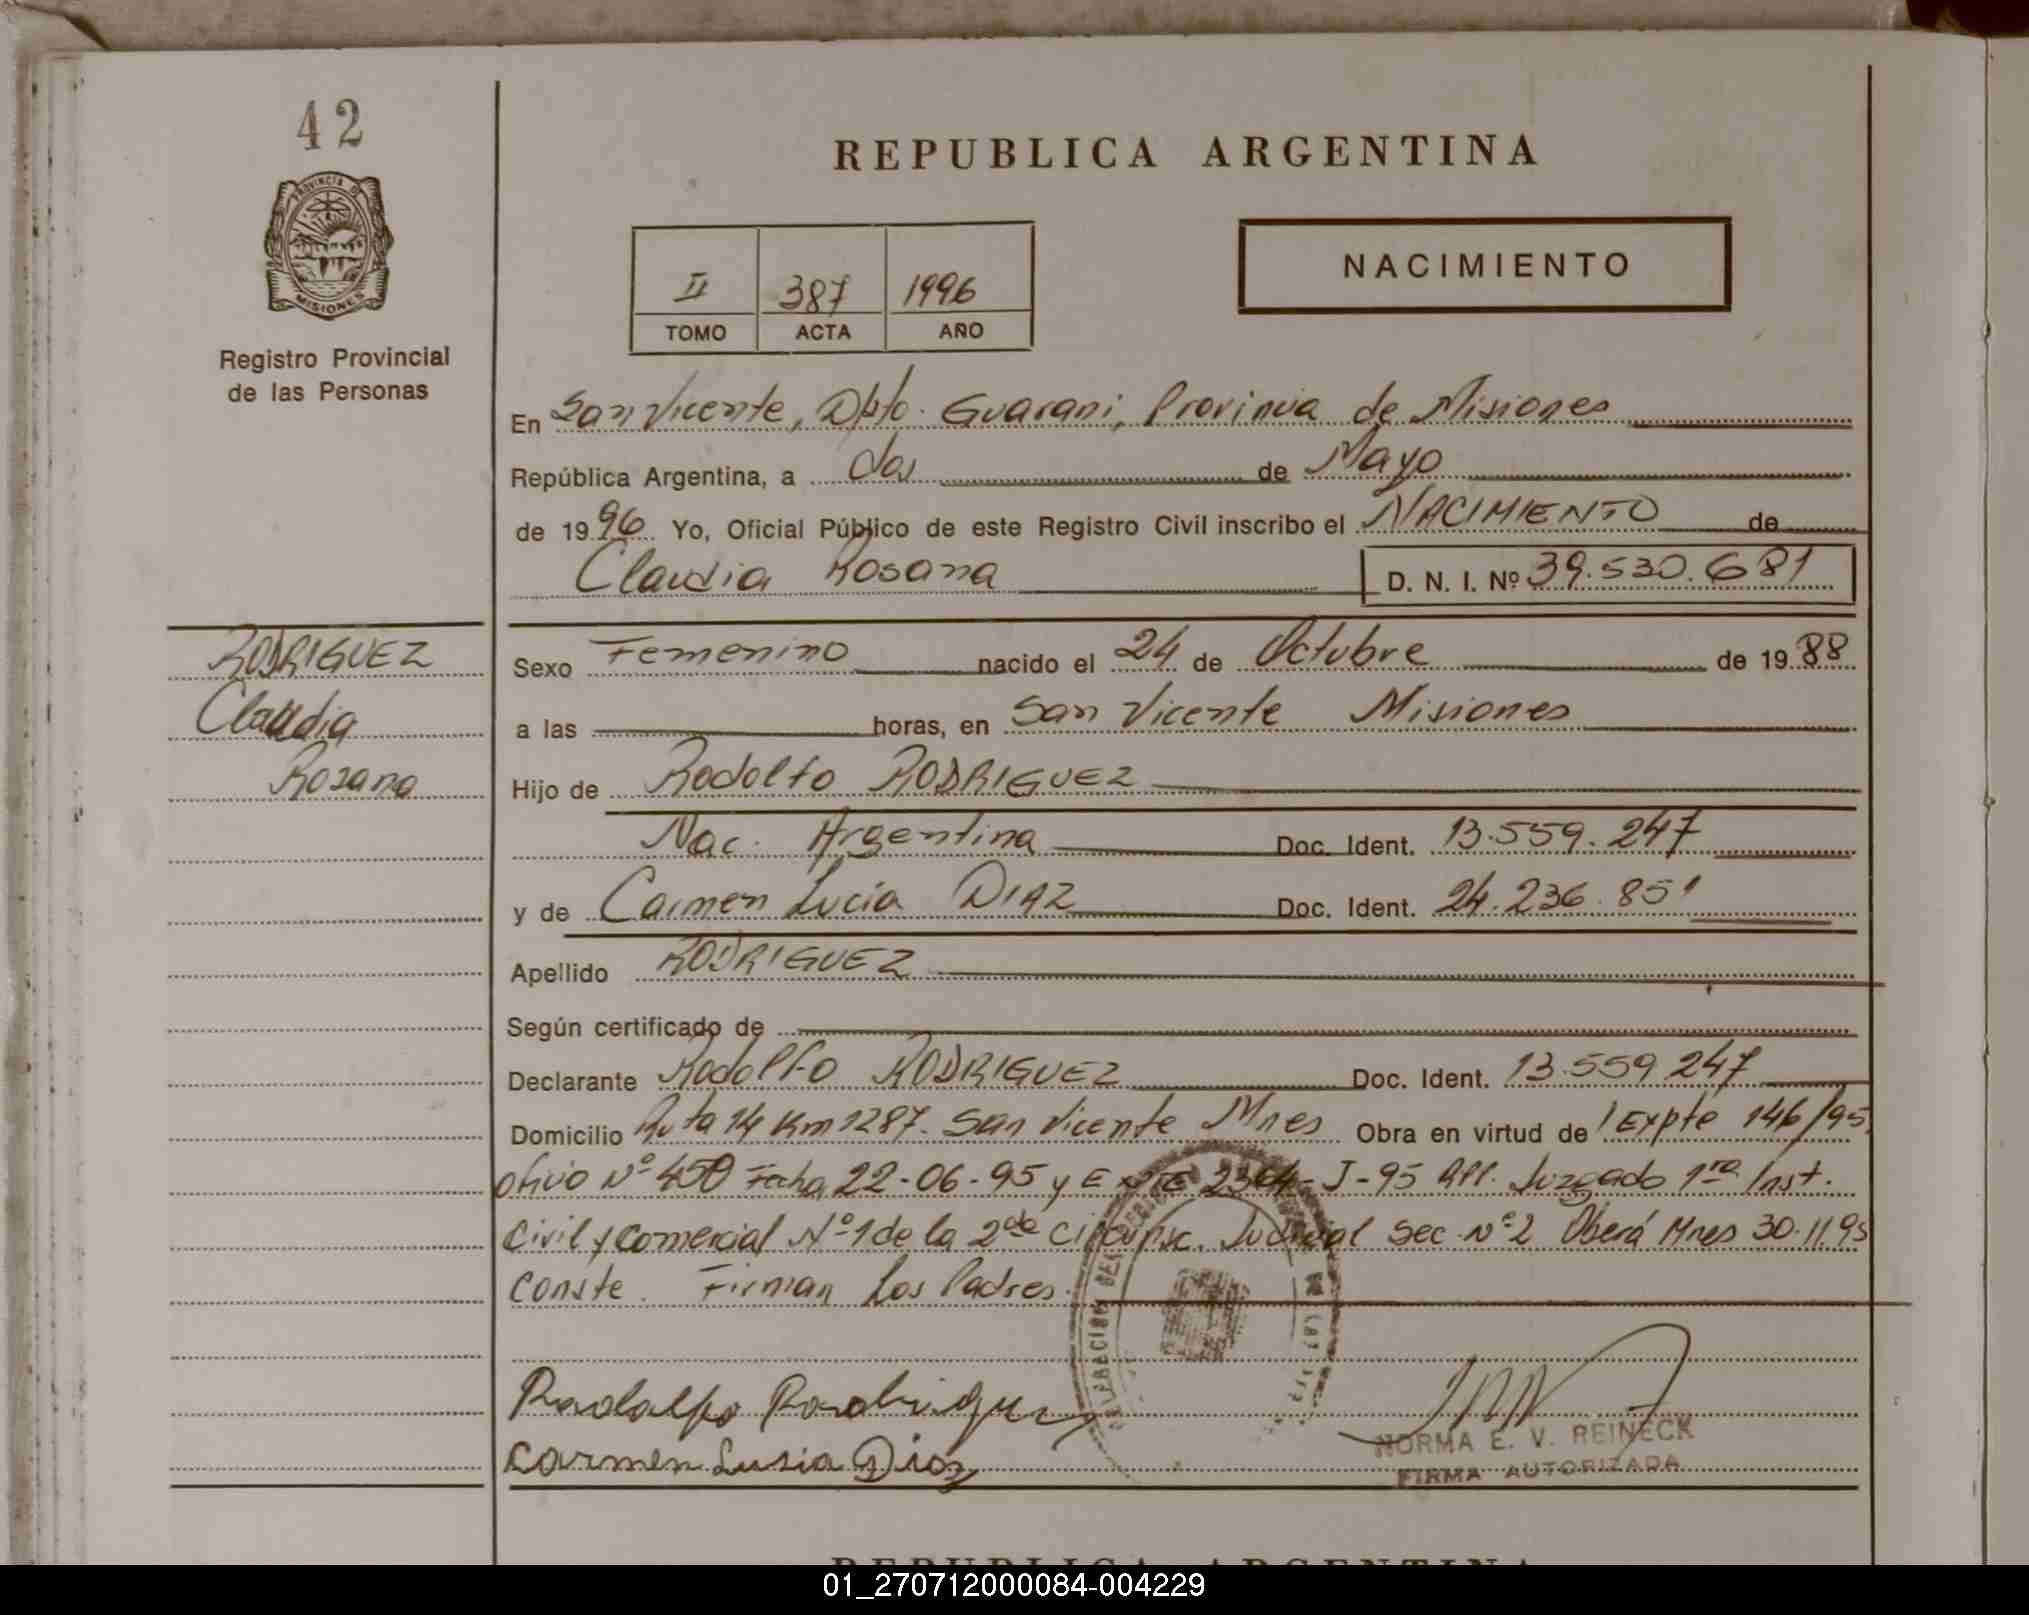 42
PROVINCIA DE
MISIONES
Registro Provincial
de las Personas
REPUBLICA ARGENTINA
II 387 1996
TOMO ACTA AÑO
NACIMIENTO
En San Vicente, Dpto. Guarani, Provincia de Misiones
República Argentina, a dos de Mayo
de 1996 Yo, Oficial Público de este Registro Civil inscribo el NACIMIENTO de
Claudia Rosana D. N. I. Nº 39.530.681
RODRIGUEZ
Claudia
Rosana
Sexo Femenino nacido el 24 de Octubre de 1988
a las horas, en San Vicente Misiones
Hijo de Rodolfo RODRIGUEZ
Nac. Argentina Doc. Ident. 13.559.247
y de Carmen Lucía DIAZ Doc. Ident. 24.236.851
Apellido RODRIGUEZ
Según certificado de
Declarante Rodolfo RODRIGUEZ Doc. Ident. 13.559.247
Domicilio Ruta 14 Km 1287. San Vicente Mnes Obra en virtud de Expte 146/95
ofivio Nº 450 Fecha 22-06-95 y Expte 2304-J-95 Juzgado 1ra Inst.
Civil y Comercial Nº 1 de la 2da Circunsc. Judicial Sec. Nº 2 Oberá Mnes 30.11.95
Conste. Firman Los Padres.
Rodolfo Rodriguez
Carmen Lusia Diaz
NORMA E. V. REINECK
FIRMA AUTORIZADA
REPUBLICA ARGENTINA
01_270712000084-004229